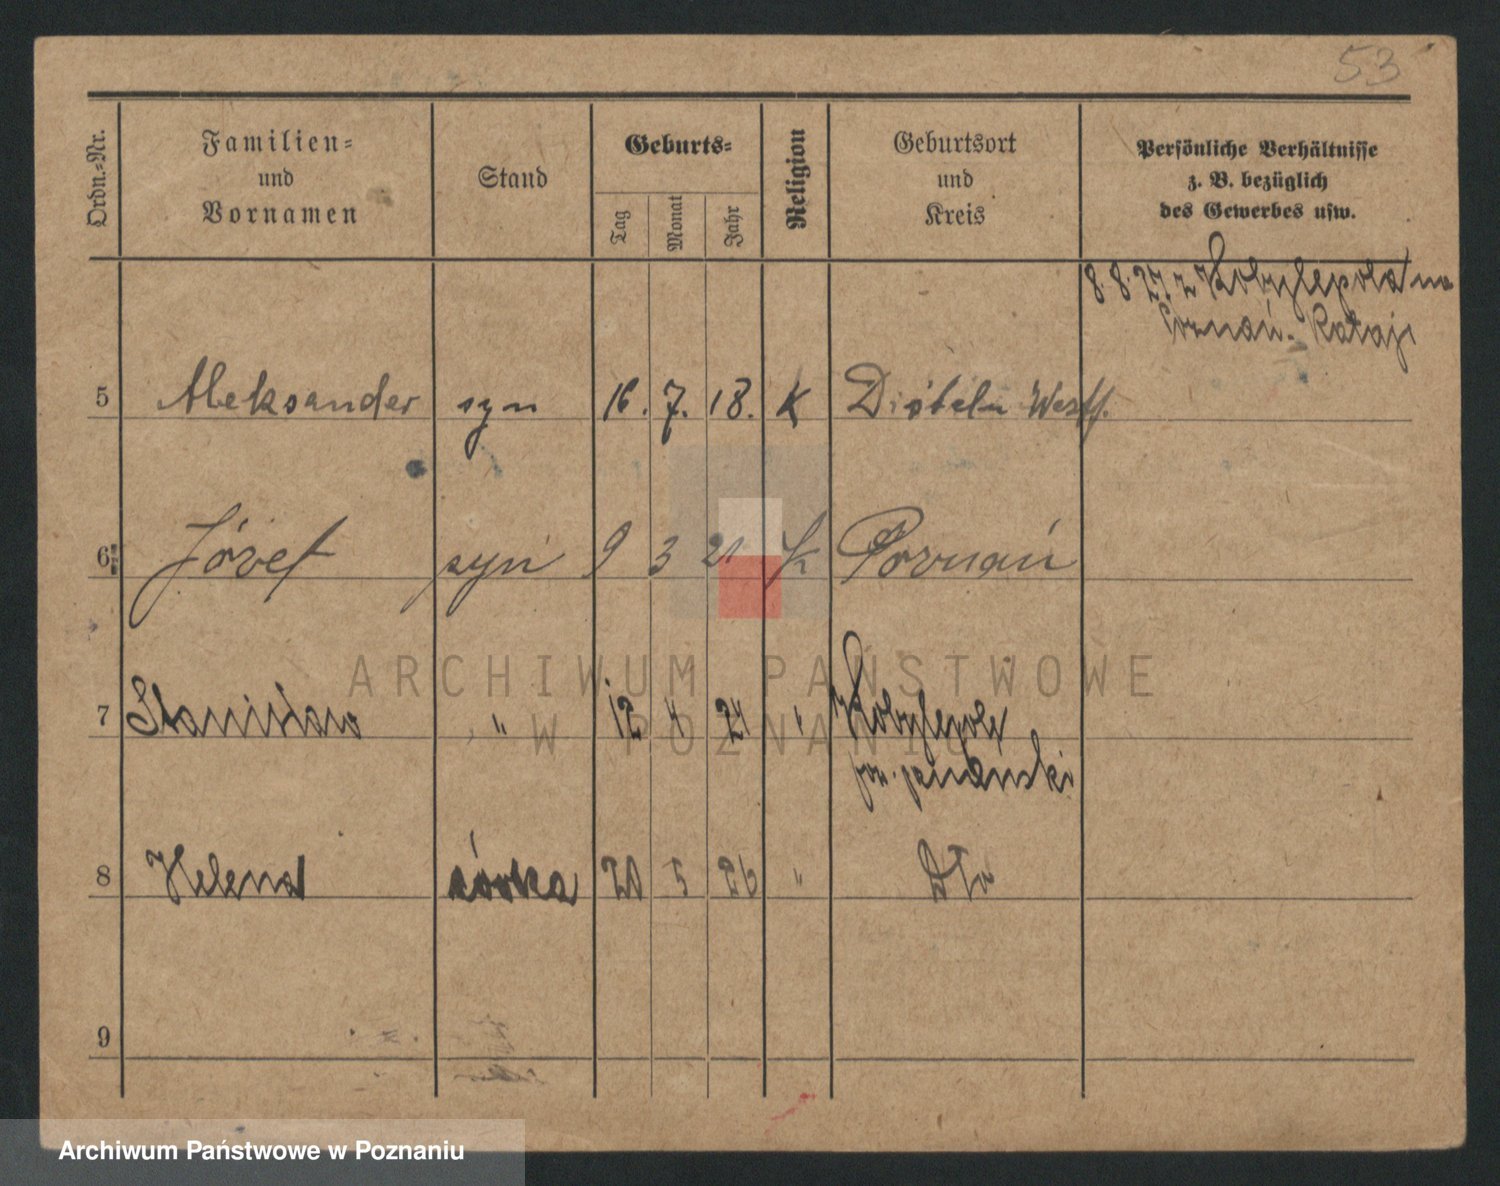 53
Ordn.-Nr.
Familien-
und
Vornamen
Stand
Geburts-
Tag
Monat
Jahr
Religion
Geburtsort
und
Kreis
Persönliche Verhältnisse
z. B. bezüglich
des Gewerbes usw.
8. 8. 27. z Kobylepola na
Poznań. Rataje
5 Aleksander syn 16. 7. 18. K Disteln Westf.
6 Józef syn 9 3 21 K Poznań
7 Stanisław " 12 4 24 " Kobylepole
pow. poznański
8 Helena córka 20 5 26 " Dto
9
ARCHIWUM PAŃSTWOWE
W POZNANIU
Archiwum Państwowe w Poznaniu